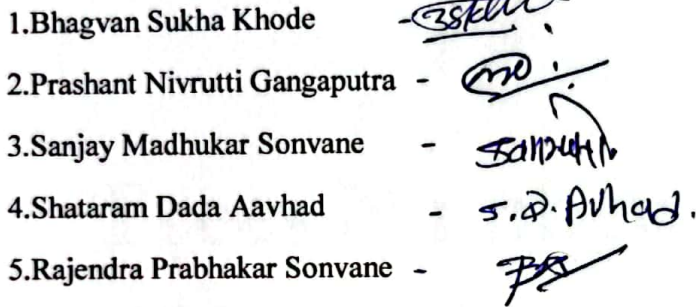 1.Bhagvan Sukha Khode -
2.Prashant Nivrutti Gangaputra -
3.Sanjay Madhukar Sonvane -
4.Shataram Dada Aavhad - S.D. Avhad.
5.Rajendra Prabhakar Sonvane -